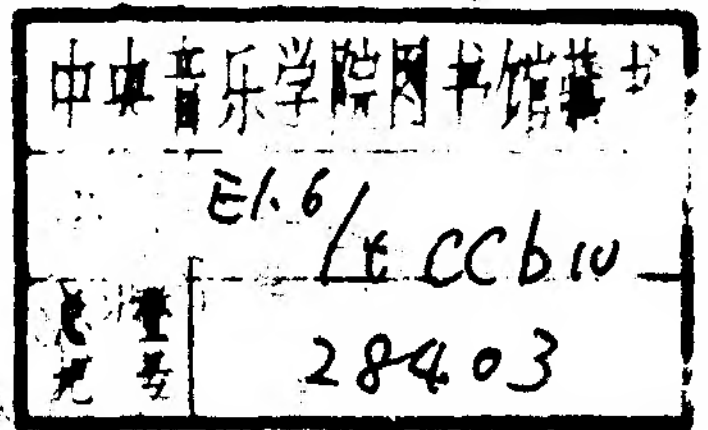 中央音乐学院图书馆藏书
E1.6/t CCb10
总登
记号 28403